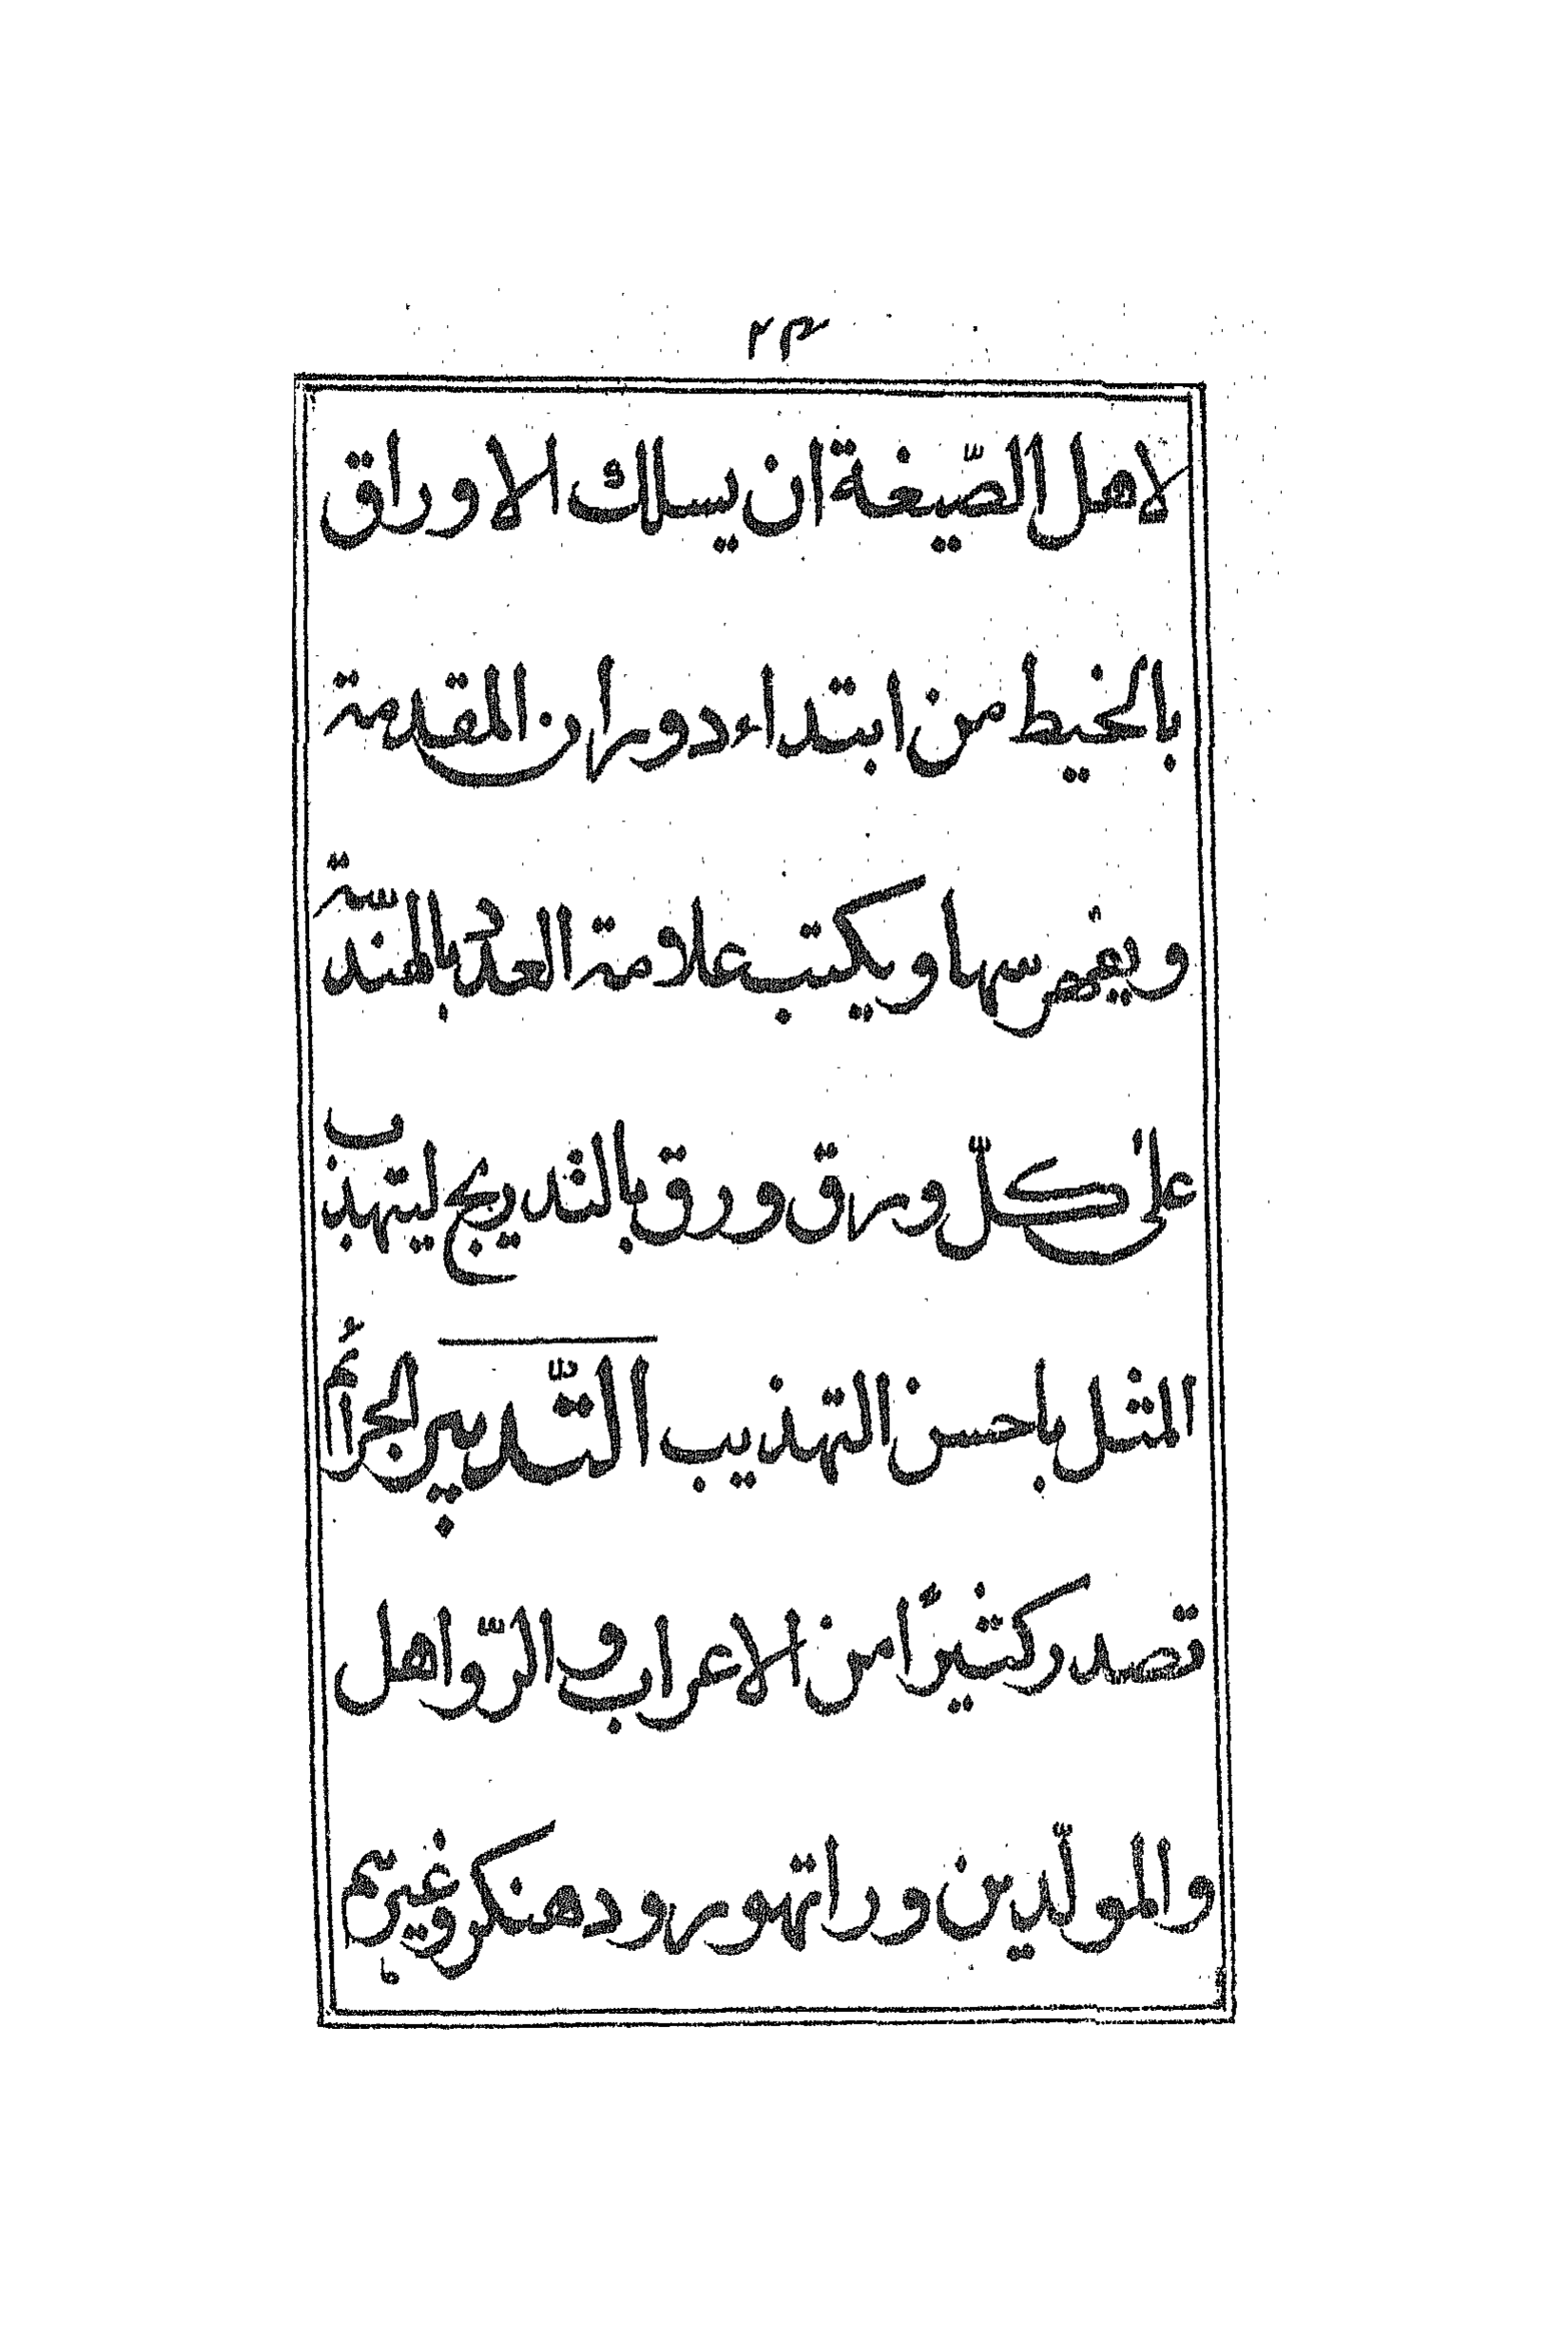 ۲۴
لاهل الصّيغة ان يسلك الاوراق
بالخيط من ابتداء دوران المقدمة
ويفهرسها ويكتب علامة العدد بالهندسّة
على كلّ ورق ورق بالتدريج ليتهذب
المثل باحسن التهذيب التّدبير الجرائم
تصدر كثيرًا من الاعراب و الرّواهل
والمولّدين وراتهور ودهنكر وغيرهم